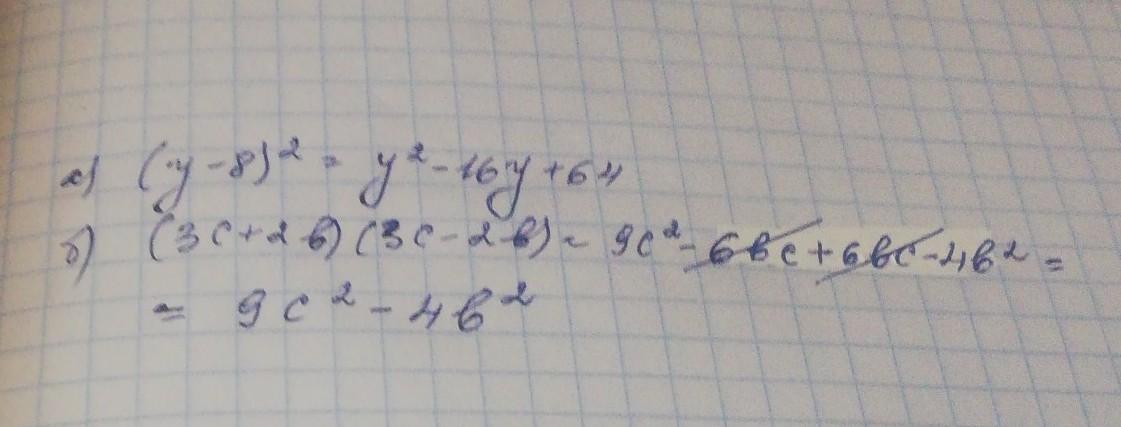 а) (y-8)² = y²-16y+64
б) (3c+2в)(3c-2в)= 9c²-6вc+6вc-4в² =
= 9c²-4в²